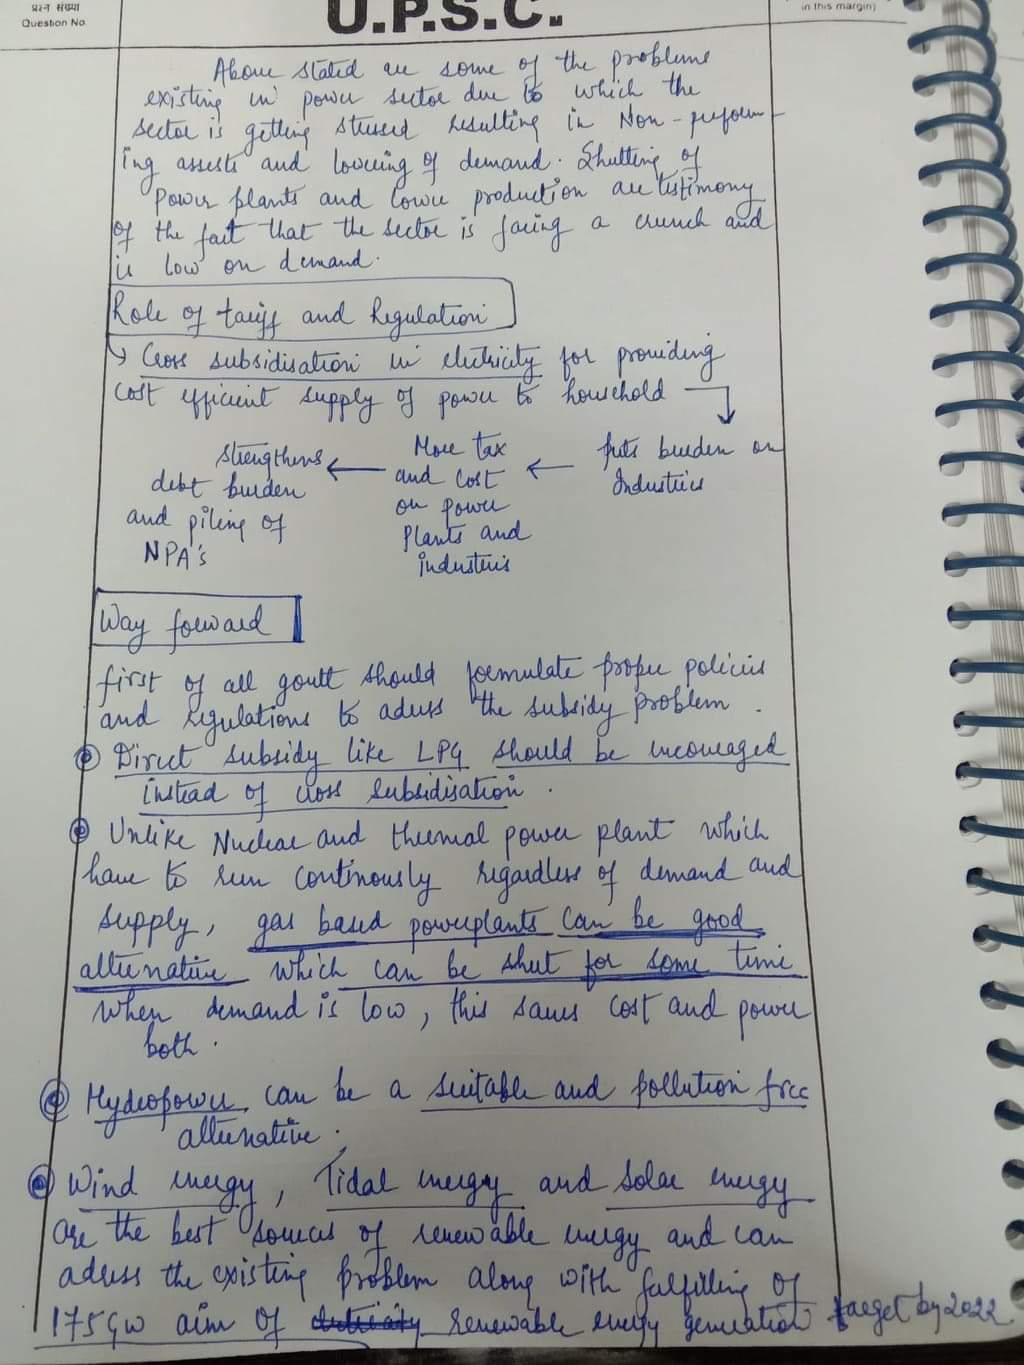 प्रश्न संख्या
Question No.
U.P.S.C.
in this margin)
Above stated are some of the problems
existing in power sector due to which the
sector is getting stressed resulting in Non-perform-
ing assests and lowering of demand. Shutting of
Power plants and lower production are testimony
of the fact that the sector is facing a crunch and
is low on demand.
Role of tariff and Regulation
↳ Cross subsidisation in electricity for providing
cost efficient supply of power to household
puts burden on
Industries
More tax
and cost
on power
plants and
industries
strengthens
debt burden
and piling of
NPA's
Way forward
first of all govtt should formulate proper policies
and regulations to adress the subsidy problem.
Direct subsidy like LPG should be encouraged
instead of cross subsidisation.
Unlike Nuclear and thermal power plant which
have to run continously regardless of demand and
supply, gas based powerplants can be good
alternative which can be shut for some time
when demand is low, this saves cost and power
both.
Hydropower can be a suitable and pollution free
alternative.
Wind energy, Tidal energy and Solar energy
are the best sources of renewable energy and can
adress the existing problem along with fulfilling of
175GW aim of renewable energy generation target by 2022